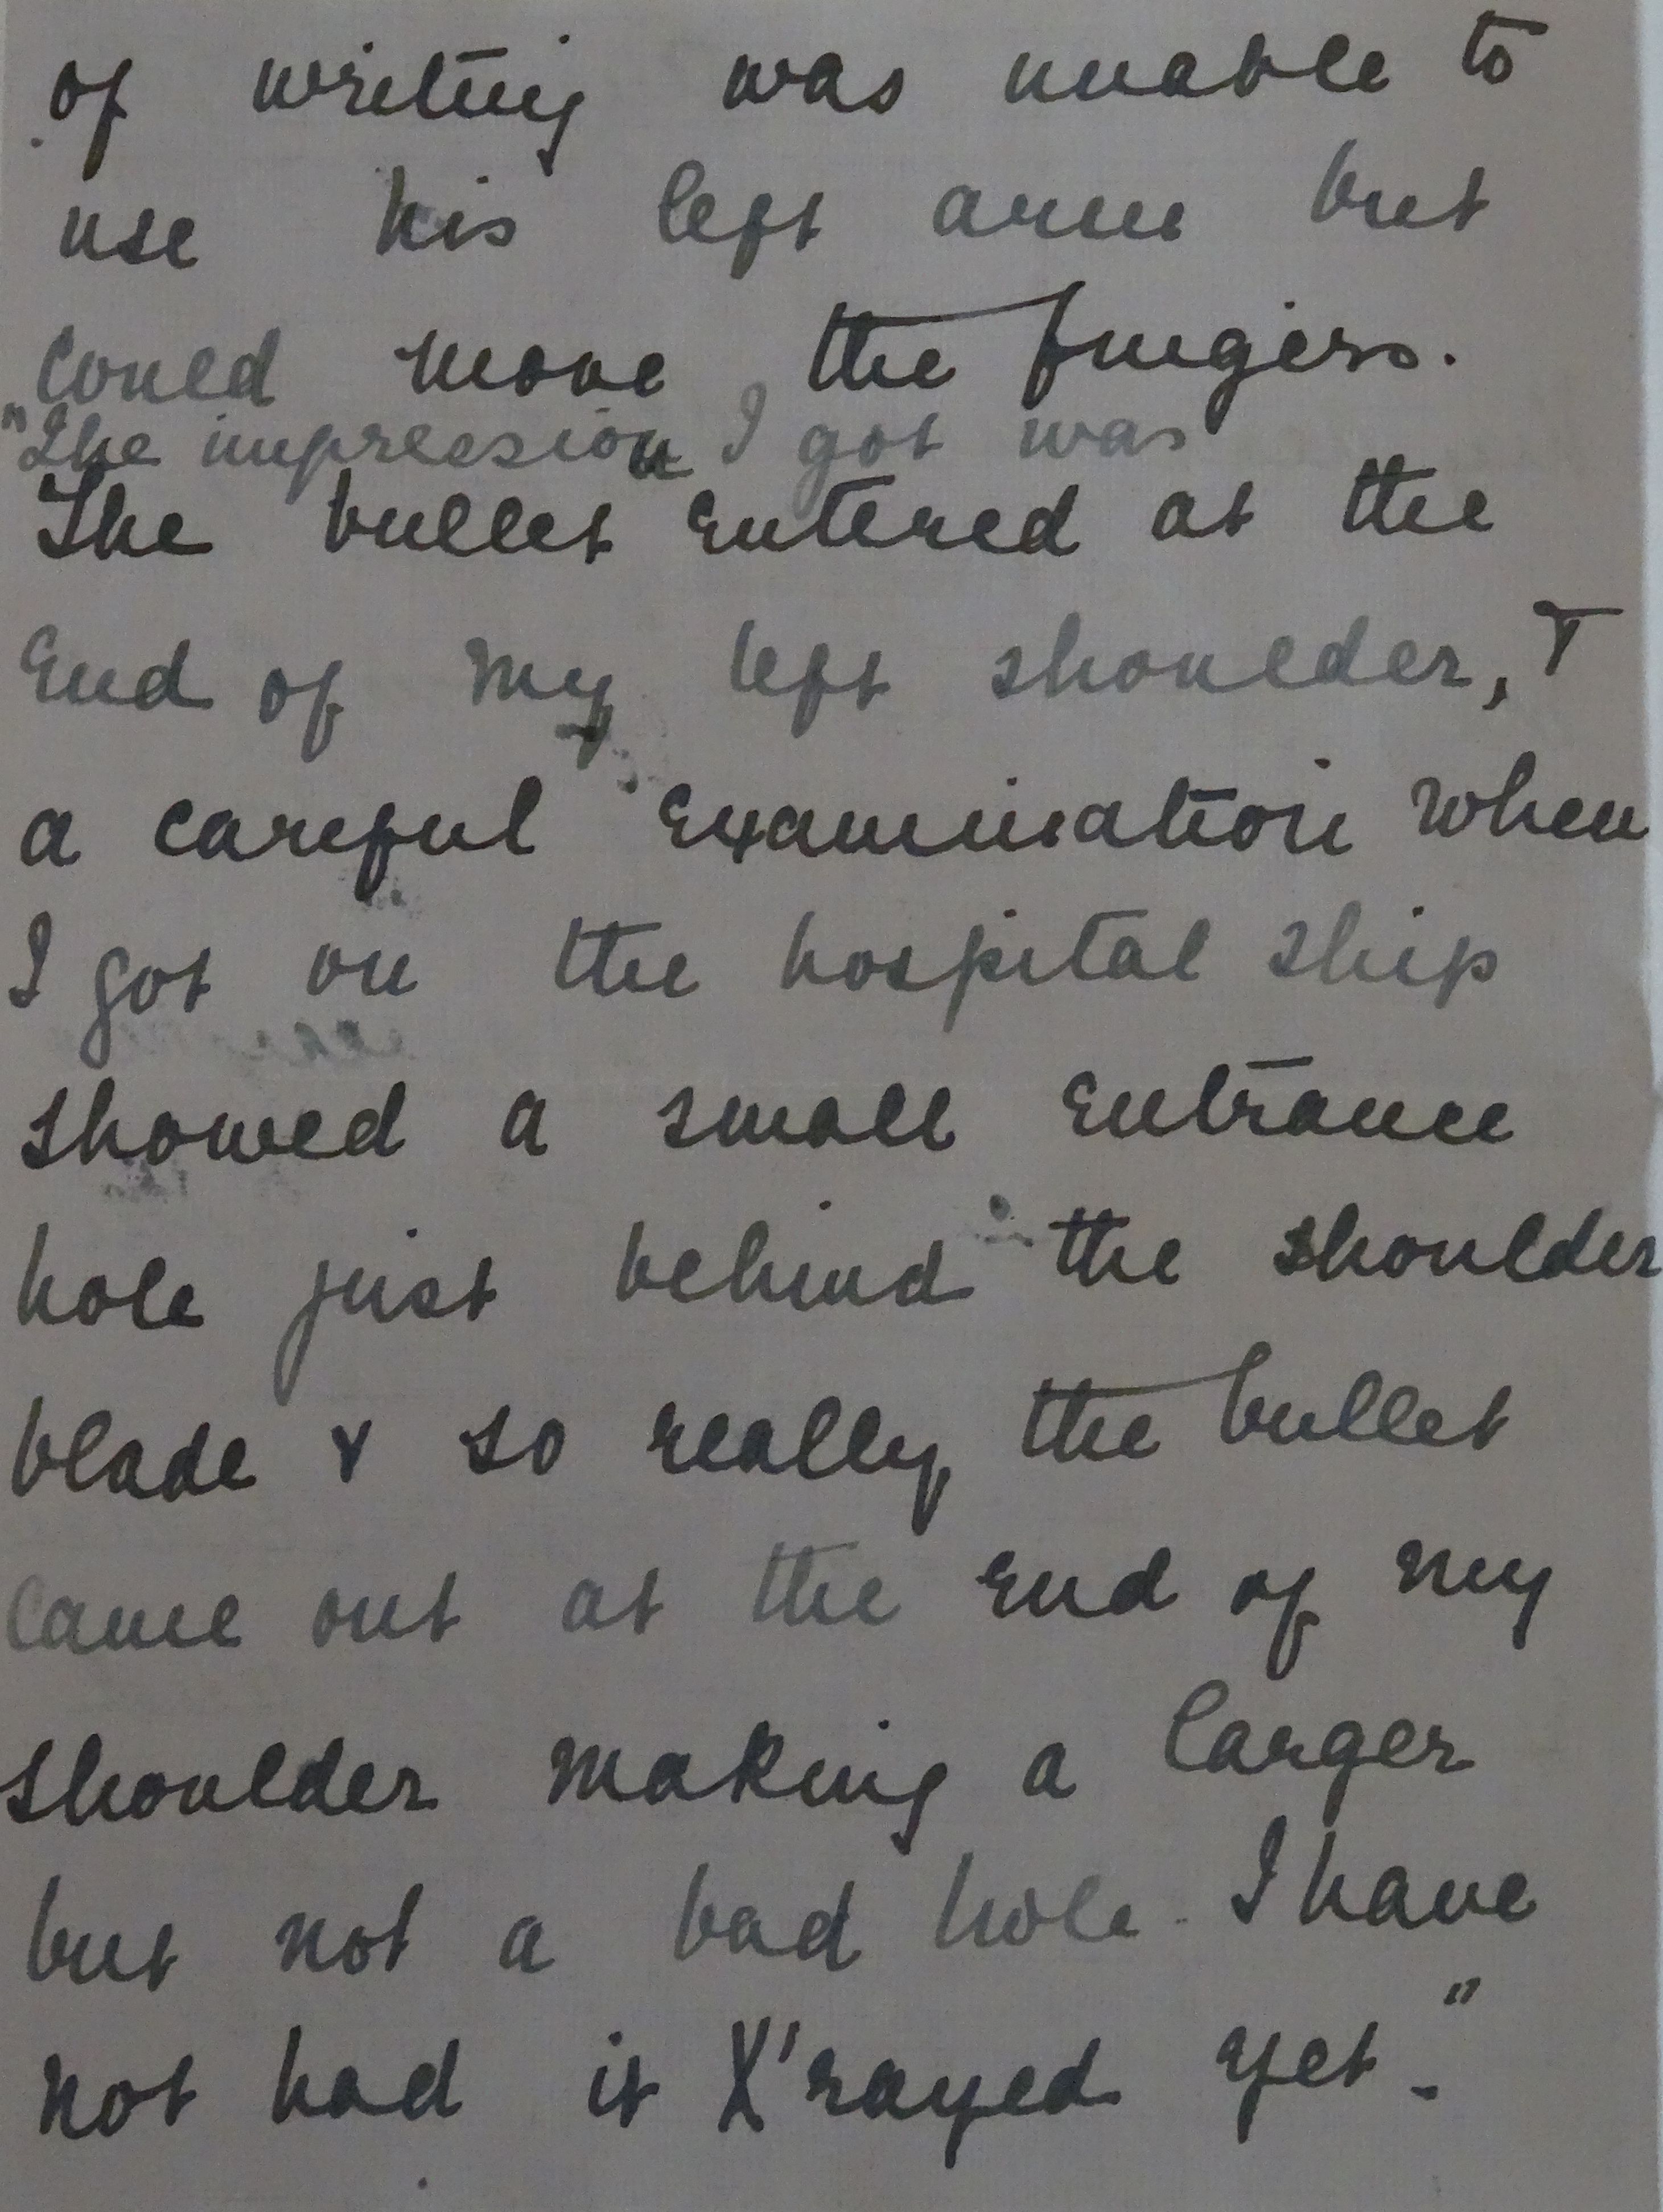 of writing was unable to
use his left arm but
could move the fingers.
"The impression I got was
The bullet entered at the
end of my left shoulder, &
a careful examination when
I got on the hospital ship
showed a small entrance
hole just behind the shoulder
blade & so really the bullet
came out at the end of my
shoulder making a larger
but not a bad hole. I have
not had it X'rayed yet."